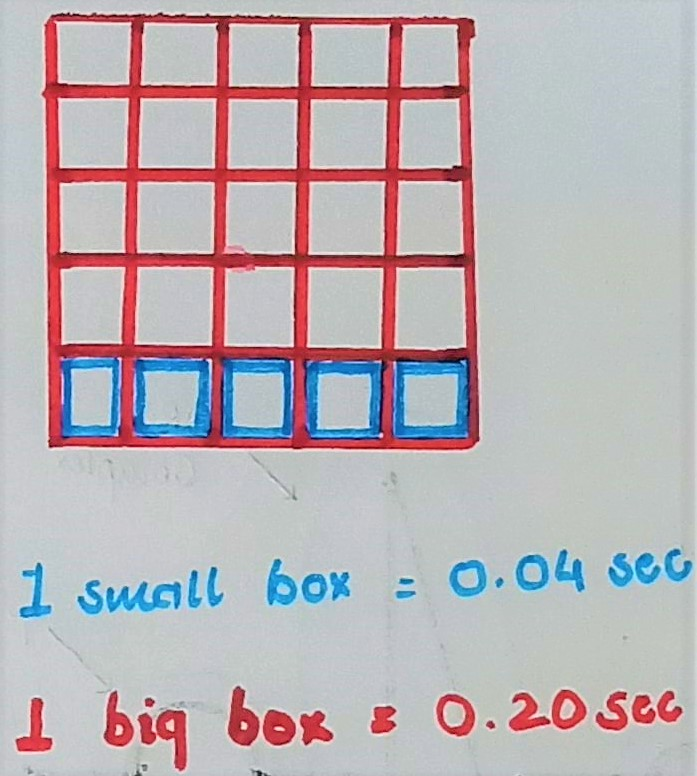 1 small box = 0.04 sec
1 big box = 0.20 sec